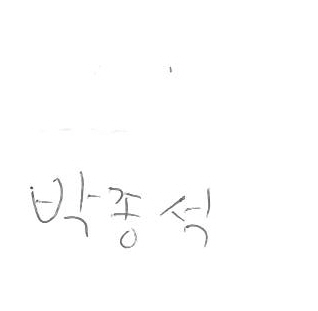 박종석